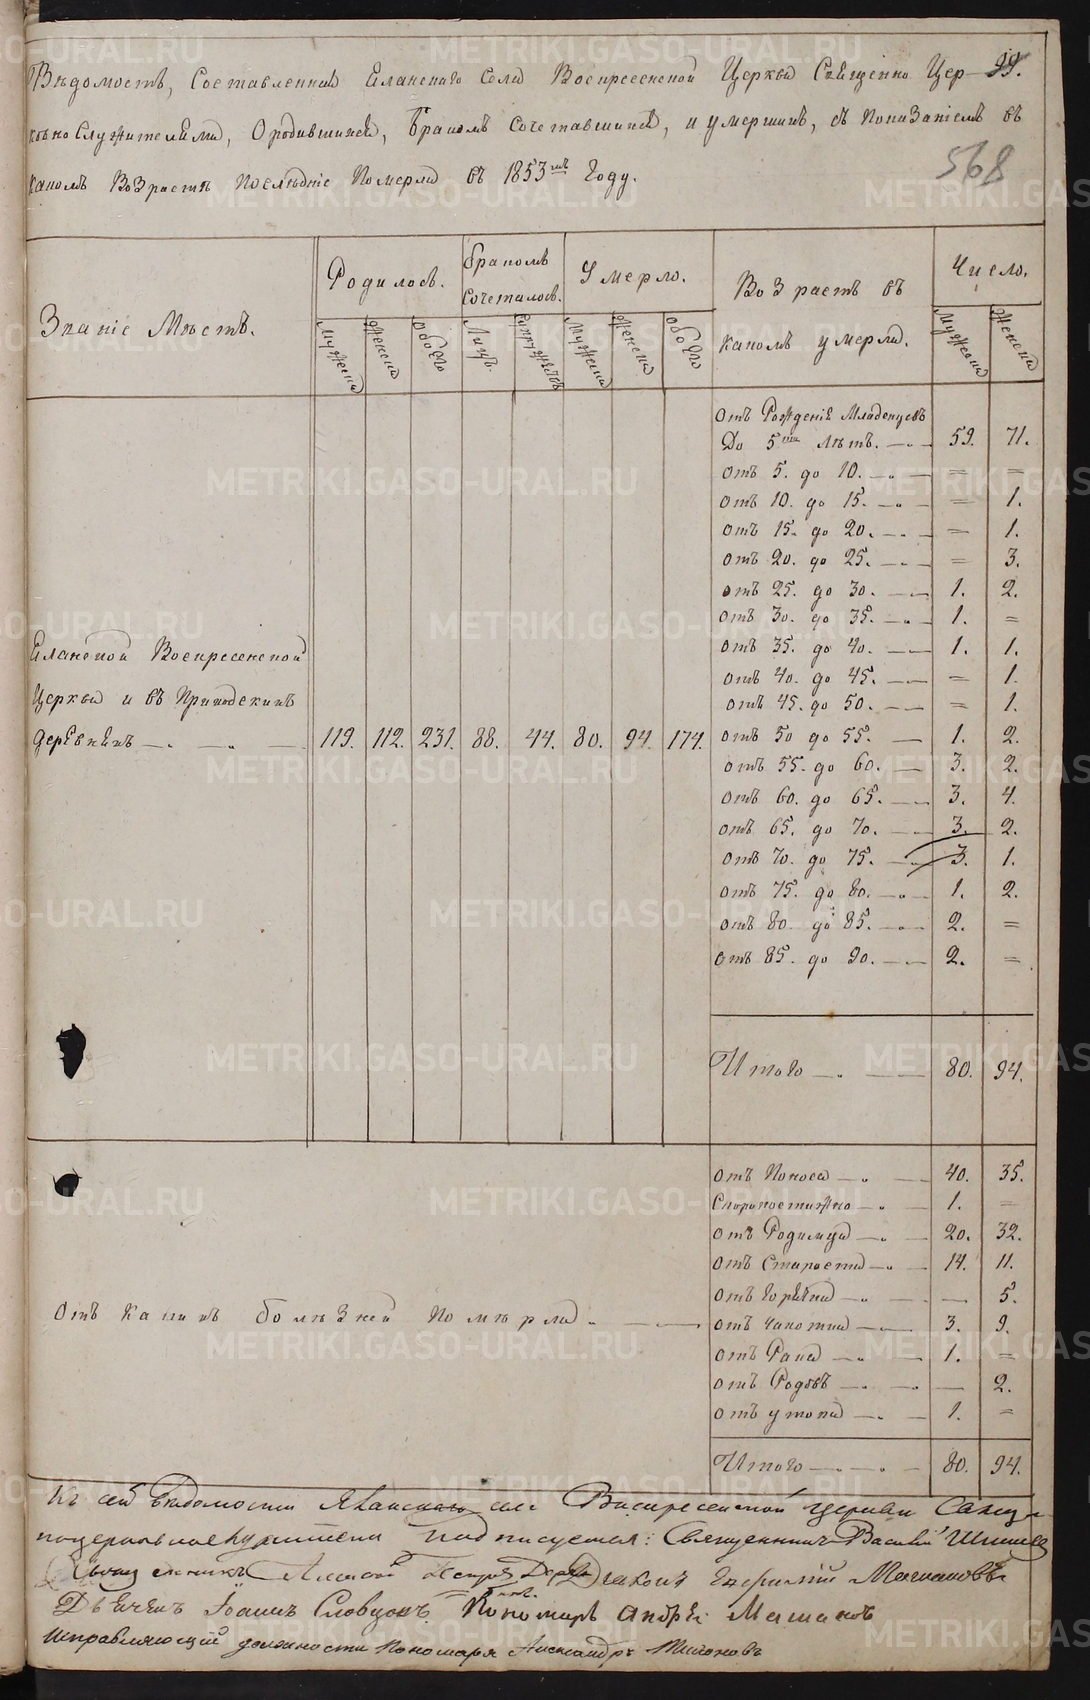 Вѣдомость, Составленная Еланскаго Села Воскресенской Церкви Священно Цер- 99.
ковно Служителями, О родившихся, Бракомъ Сочетавшихся, и умершихъ, съ Показаніемъ въ
568
какомъ Возрастѣ Послѣдніе Померли въ 1853мъ Году.
Званіе Мѣстъ.
Родилось.
Бракомъ Сочеталось.
Умерло.
Возрастъ въ
какомъ умерли.
Число.
Мужеска Женска Обоего Лицъ. Супружествъ Мужеска Женска Обоего Мужеска Женска
Отъ Рожденія Младенцевъ
До 5ти Лѣтъ. 59. 71.
Отъ 5. до 10. = =
Отъ 10. до 15. = 1.
Отъ 15. до 20. = 1.
Отъ 20. до 25. = 3.
Отъ 25. до 30. 1. 2.
Отъ 30. до 35. 1. =
Отъ 35. до 40. 1. 1.
Отъ 40. до 45. = 1.
Отъ 45. до 50. = 1.
Еланской Воскресенской
Церкви и въ Приходскихъ
деревняхъ 119. 112. 231. 88. 44. 80. 94. 174. Отъ 50 до 55. 1. 2.
Отъ 55. до 60. 3. 2.
Отъ 60. до 65. 3. 4.
Отъ 65. до 70. 3. 2.
Отъ 70. до 75. 3. 1.
Отъ 75. до 80. 1. 2.
Отъ 80. до 85. 2. =
Отъ 85. до 90. 2. =
Итого 80. 94.
Отъ Каких болѣзней Помѣрли.
Отъ Поноса 40. 35.
Скоропостижно 1. =
Отъ Родимца 20. 32.
Отъ Старости 14. 11.
Отъ Горячки — 5.
Отъ Чахотки 3. 9.
Отъ Рана 1. =
Отъ Родовъ — 2.
Отъ утопа 1. =
Итого 80. 94.
Къ сей Вѣдомости Яланскаго села Воскресенской Церкви Священно
подписуемся: Священникъ Василій
Священникъ Алексей Петръ Діаконъ Евфимій
Дьячекъ Іоаннъ Словцовъ. Пономарь Андрей
Исправляющій должности Пономаря Александръ Тихоновъ
METRIKI.GASO-URAL.RU